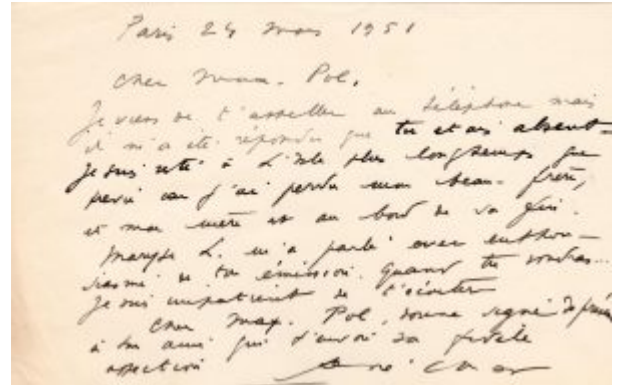 Paris 24 mars 1951
Cher Max-Pol,
Je viens de t'appeller au téléphone mais
il m'a été répondu que tu étais absent-
Je suis resté à L'Isle plus longtemps que
prévu car j'ai perdu mon beau-frère,
et ma mère est au bord de sa fin.
Maryse L. m'a parlé avec enthou-
siasme de ton émission. Quand tu voudras...
Je suis impatient de t'écouter
Cher Max-Pol, donne signe de
à ton ami qui t'envoie sa fidèle
affection René Char